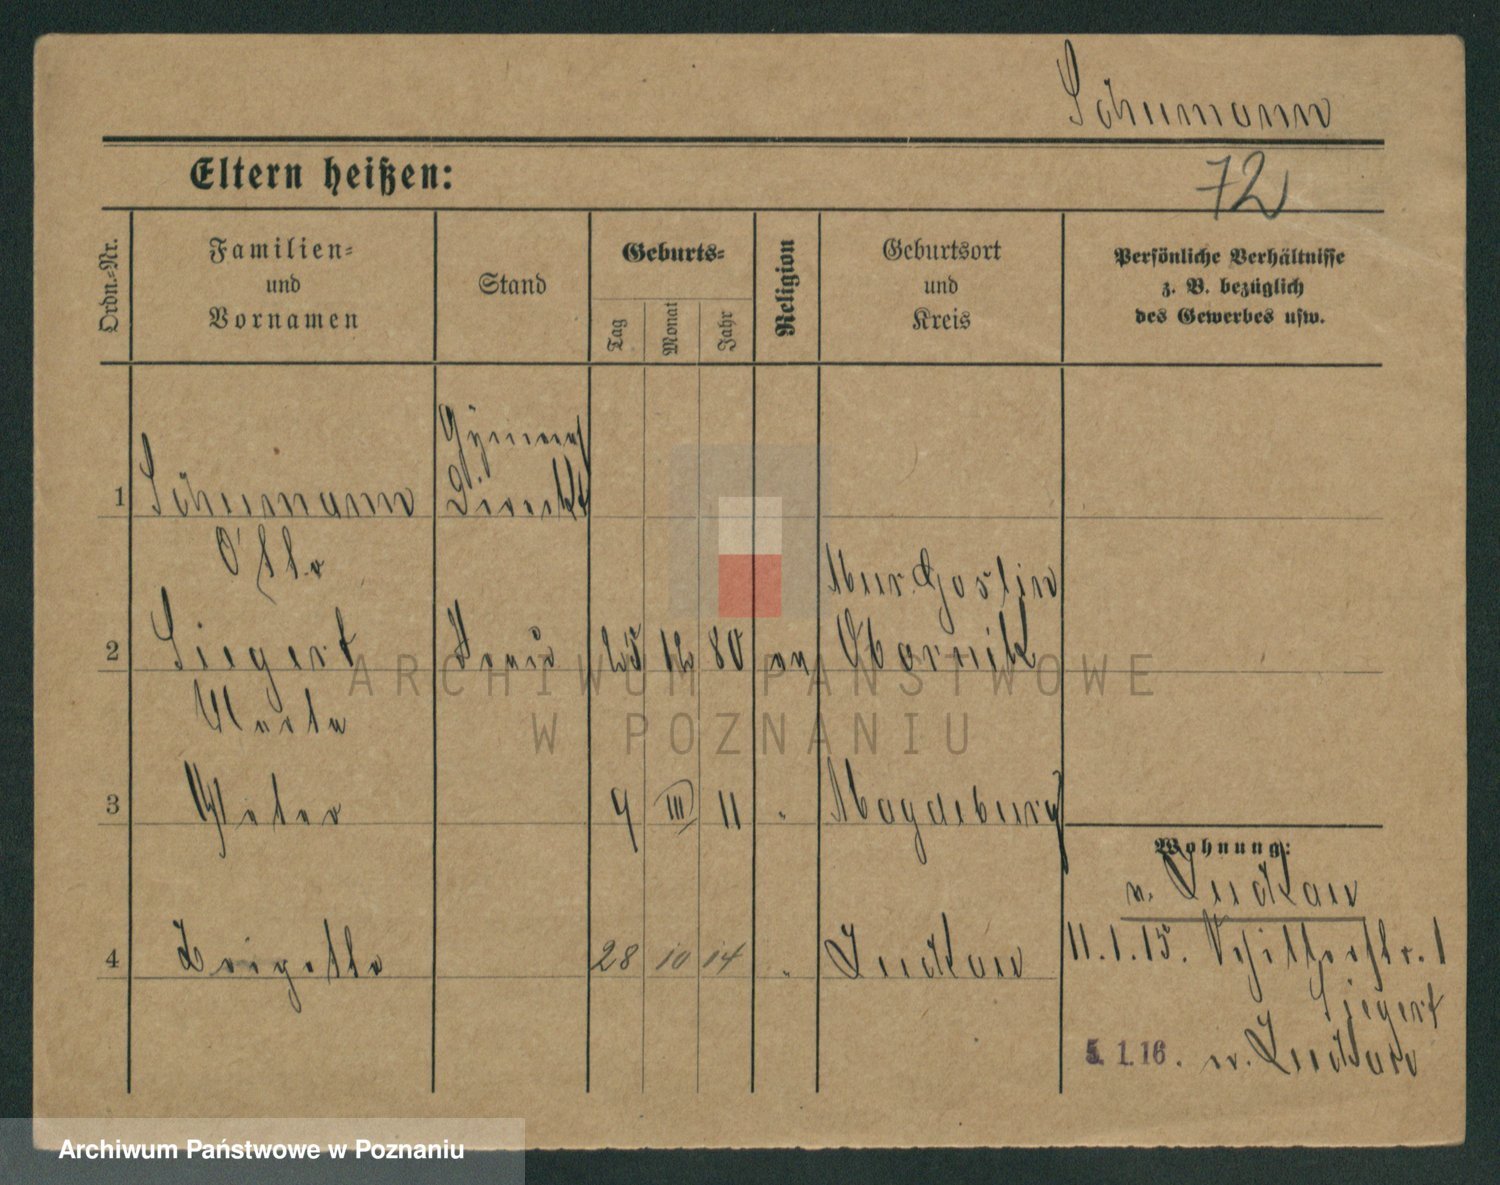 Schumann
Eltern heißen:
72
Ordn.=Nr.
Familien=
und
Vornamen
Stand
Geburts=
Tag
Monat
Jahr
Religion
Geburtsort
und
Kreis
Persönliche Verhältnisse
z. B. bezüglich
des Gewerbes usw.
Gymnas
1 Schumann Direkt
Otto
Mur. Goslin
2 Siegert Frau 25 12 80 ev Obornik
Herta
3 Peter 9 III 11 " Magdeburg
Wohnung:
n. Luckau
4 Brigitte 28 10 14 " Luckau
11.1.15. Schillerstr. 1
Siegert
5. 1.16. n. Luckau
ARCHIWUM PAŃSTWOWE
W POZNANIU
Archiwum Państwowe w Poznaniu